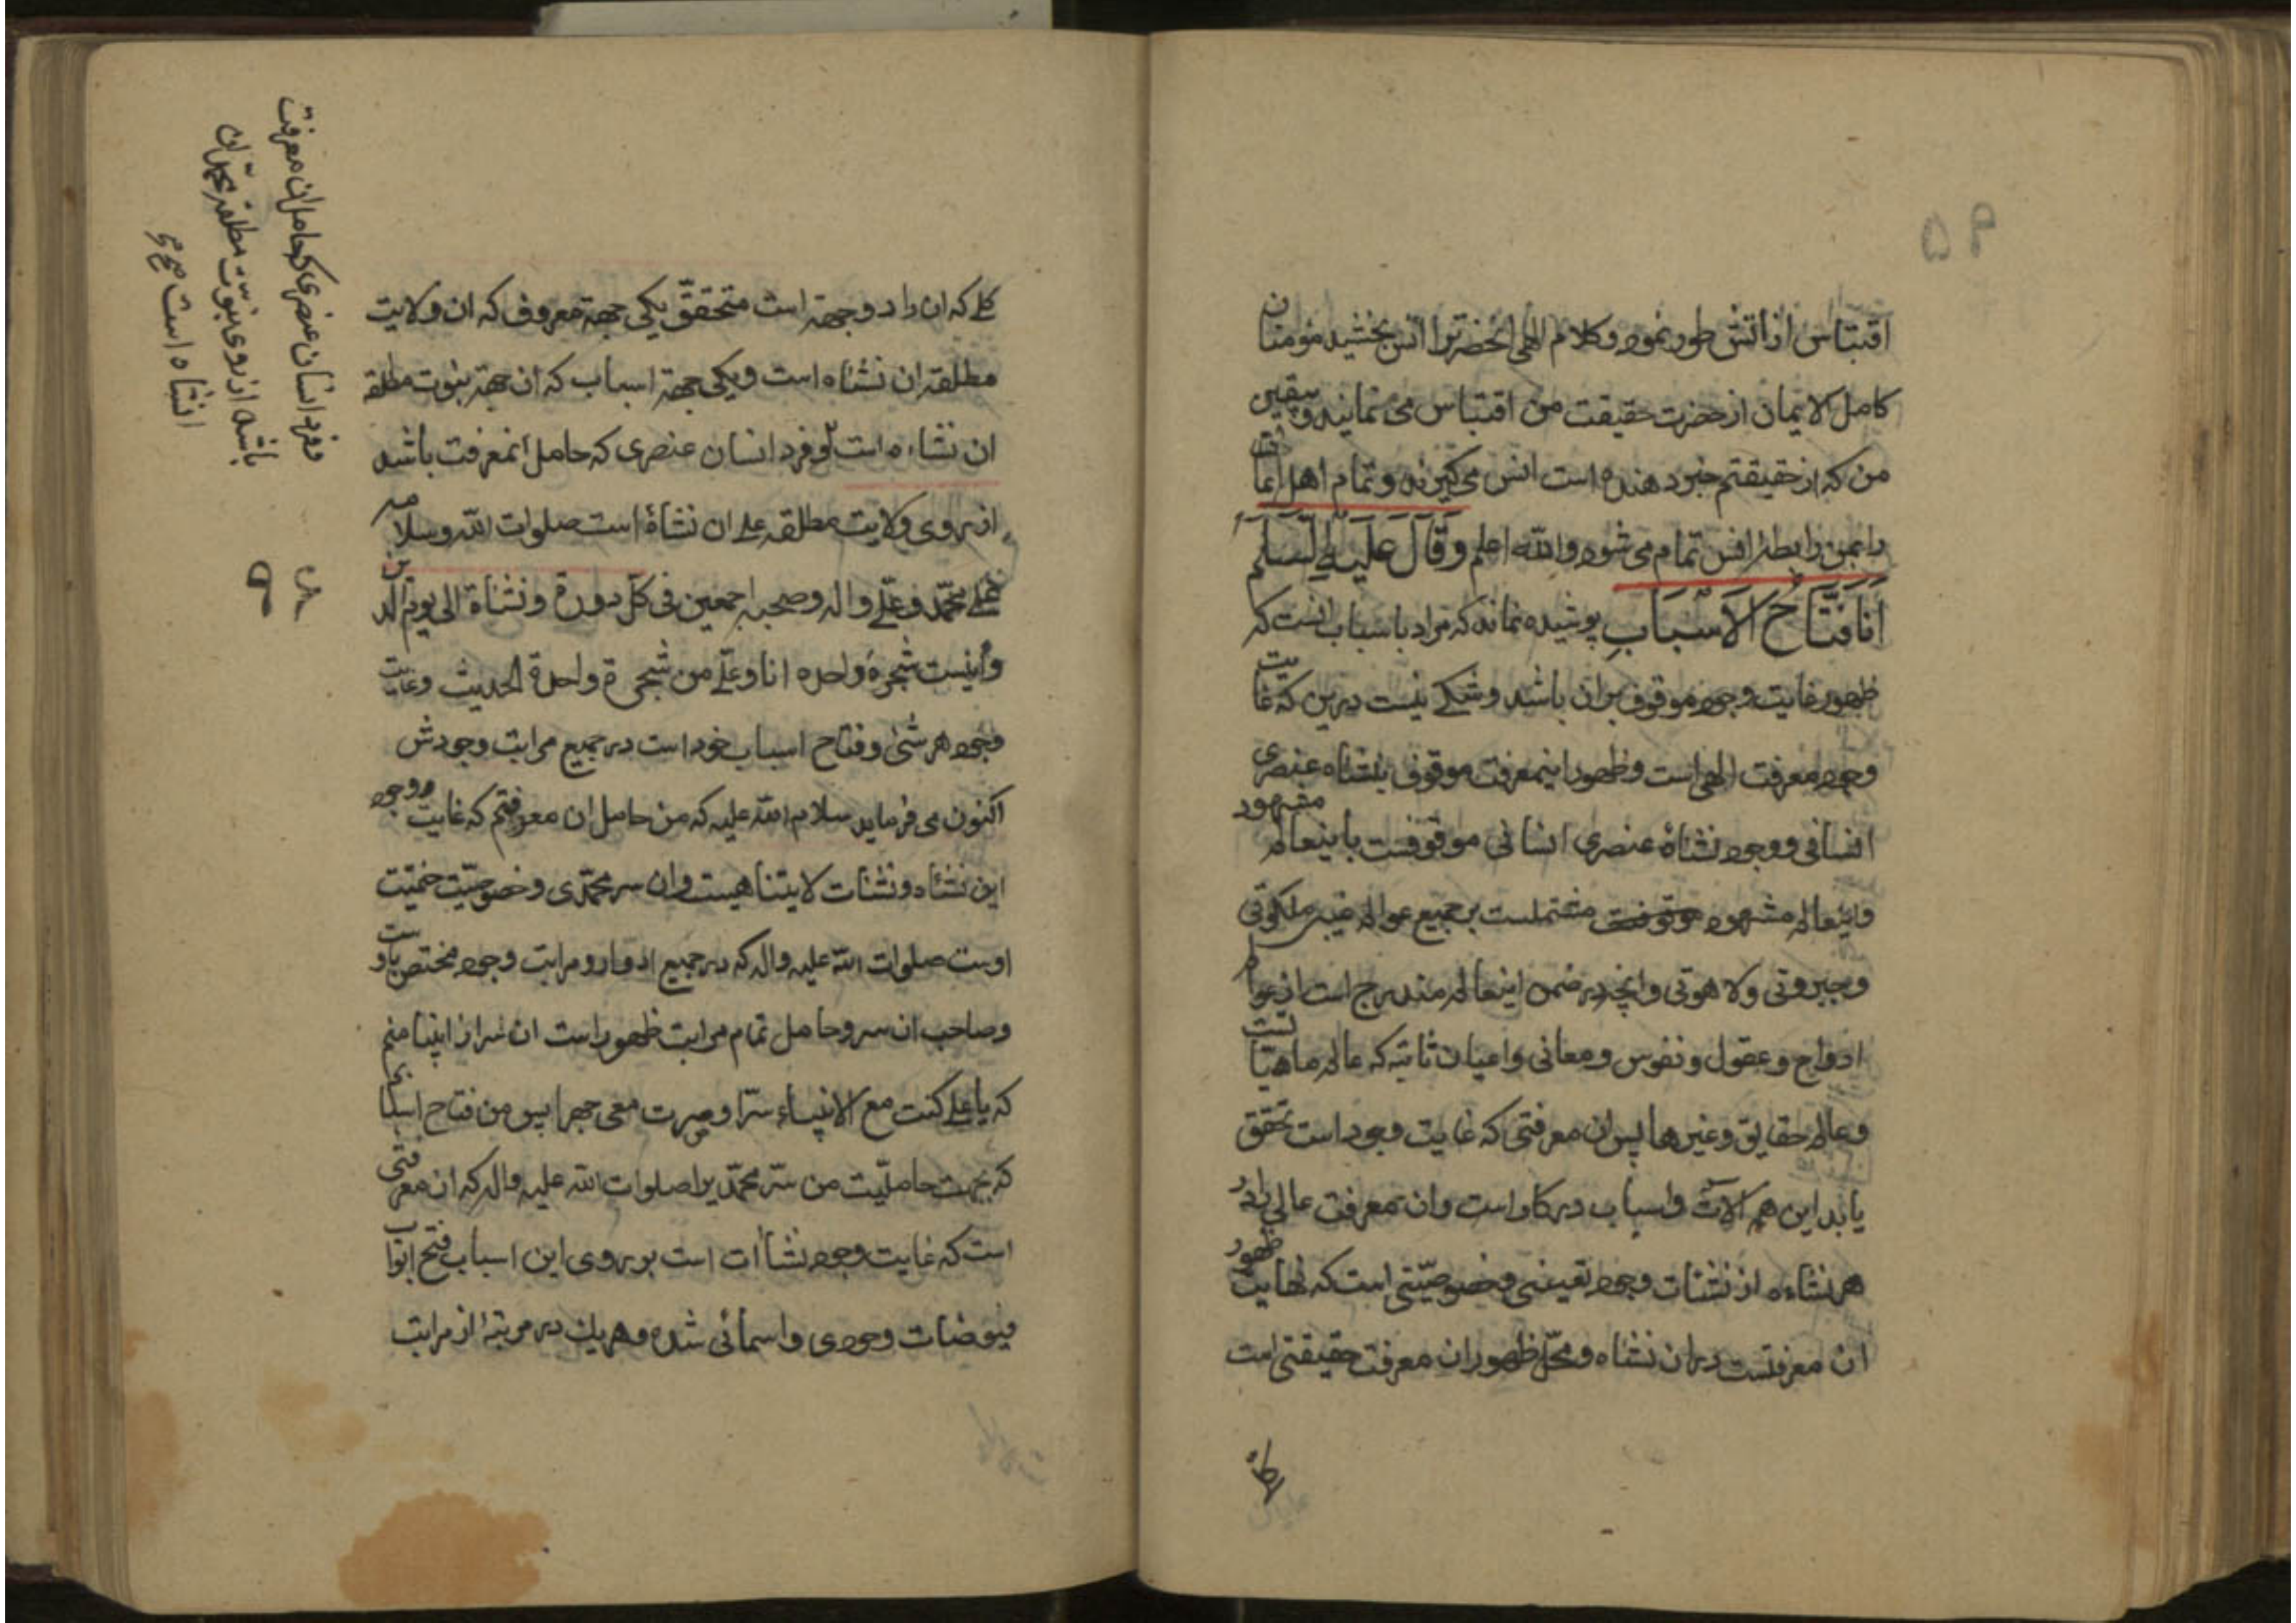 ۵۹
اقتباس از اتش طور نمود و کلام الهی انحضرترا انس بخشید مؤمنان
کامل الایمان از حضرت حقیقت من اقتباس می نمایند و بیقین
من که از حقیقتم خبر دهنده است انس می کیرند و تمام اهل ایمانت
را بمن رابطهٔ انس تمام می شود والله اعلم وَقَالَ عَلَيهِ السَّلَم
اَنَا فَتَّاحُ الاَسْبَابِ پوشیده نماند که مراد باسباب انست که
ظهور غایت وجود موقوف بران باشد و شکی نیست درین که غایت
وجود معرفت الهی است و ظهور اینمعرفت موقوف بنشاه عنصری
انسانی و وجود نشاهٔ عنصری انسانی موقوفست باینعالم مشهود
و اینعالم مشهود موقوفست مشتملست بر جمیع عوالم غیبی ملکوتی
و جبروتی و لاهوتی و انچه در ضمن اینعالم مندرج است از عوالم
ارواح و عقول و نفوس و معانی و اعیان ثابته که عالم ماهیتاست
و عالم حقایق و غیرها پس ان معرفتی که غایت وجود است تحقق
یابد این هم الات و اسباب در کار است و ان معرفت عالی را در
هر نشاءه از نشئات وجود تعینی و خصوصیّتی است که نهایت ظهور
ان معرفتست در ان نشاه و محلّ ظهور ان معرفت حقیقتی است
کلی که ان را دو جهة است متحققّ یکی جهة معروف که ان ولایت
مطلقه ان نشاه است و یکی جهة اسباب که ان جهة نبوت مطلقه
ان نشاءه است و فرد انسان عنصری که حامل انمعرفت باشد
از روی ولایت مطلقه علی ان نشاهٔ است صلوات الله و سلامه
علی محمّد و علیّ واله وصحبه اجمعین فی کلّ دورة و نشاة الی یوم الدین
و اینست شجرهٔ واحده انا و علیّ من شجرة واحدة الحدیث و غایت
وجود هر شئ و فتاح اسباب خود است در جمیع مراتب وجودش
اکنون می فرماید سلام الله علیه که من حامل ان معرفتم که غایت وجود
این نشاه و نشئات لایتناهیست و ان سر محمّدی و خصوصیّت ختمیّت
اوست صلوات الله علیه واله که در جمیع ادوار و مراتب وجود مختص باوست
و صاحب ان سر و حامل تمام مراتب ظهور است ان سر از انبیا منم
که یا علی کنت مع الانبیاء سرّا وصرت معی جهرا پس من فتاح اسبابم
که بجهت حاملیّت من سرّ محمّدیرا صلوات الله علیه واله که ان معرفتی
است که غایت وجود نشأات است بر روی این اسباب فتح ابواب
فیوضات وجودی و اسمائی شده و هر یك در مرتبهٔ از مراتب
و فرد انسان عنصری که حامل ان معرفت
باشد از روی نبوّت مطلقه محمّد ان
نشاه است صح